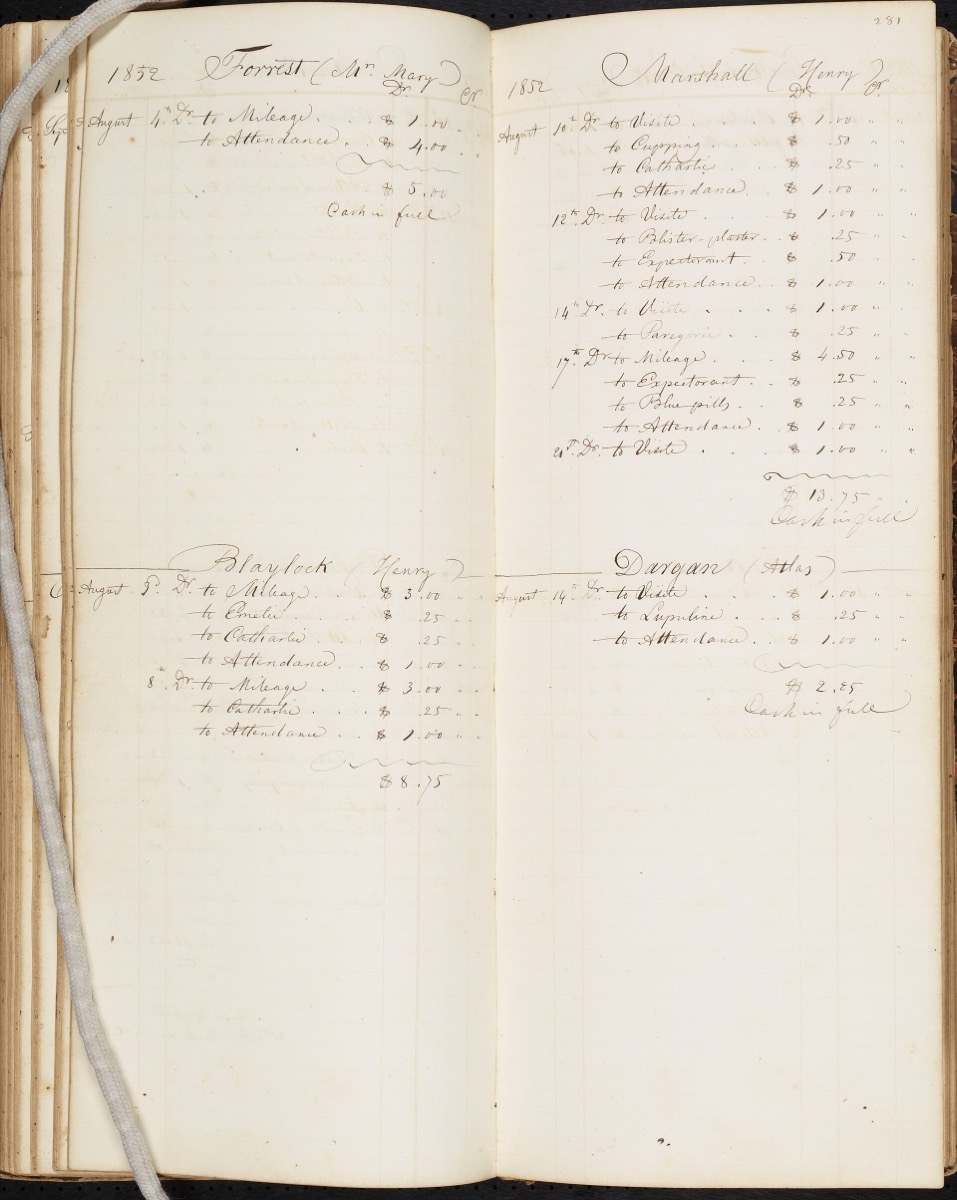 1852 Forrest (Mrs. Mary)
Dr. Cr.
August 4th Dr. to Mileage. $ 1.00 " "
to Attendance. $ 4.00 " "
$ 5.00
Cash in full
Blaylock (Henry)
August 5th Dr. to Mileage. $ 3.00 " "
to Emetic $ .25 " "
to Cathartic $ .25 " "
to Attendance. $ 1.00 " "
8th Dr. to Mileage $ 3.00 " "
to Cathartic $ .25 " "
to Attendance $ 1.00 " "
$ 8.75
281
1852 Marshall (Henry)
Dr. Cr.
August 10th Dr. to Visite $ 1.00 " "
to Cupping $ .50 " "
to Cathartic $ .25 " "
to Attendance $ 1.00 " "
12th Dr. to Visite $ 1.00 " "
to Blister-plaster $ .25 " "
to Expectorant $ .50 " "
to Attendance $ 1.00 " "
14th Dr. to Visite $ 1.00 " "
to Paregoric $ .25 " "
17th Dr. to Mileage $ 4.50 " "
to Expectorant $ .25 " "
to Blue pills $ .25 " "
to Attendance. $ 1.00 " "
21st Dr. to Visite $ 1.00 " "
$ 13.75
Cash in full
Dargan (Atlas)
August 14th Dr. to Visite $ 1.00 " "
to Lupuline $ .25 " "
to Attendance $ 1.00 " "
$ 2.25
Cash in full